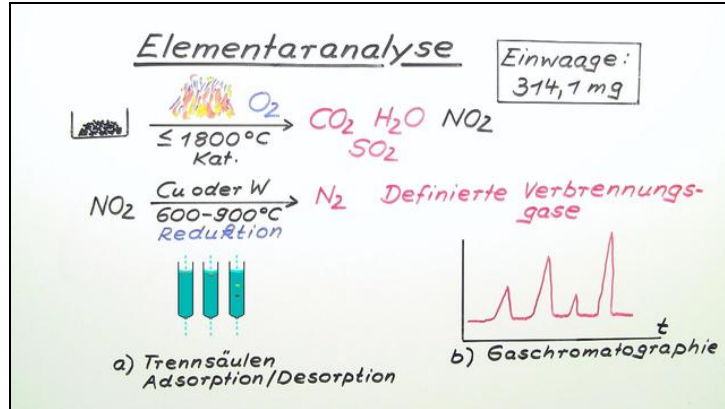 Elementaranalyse
Einwaage:
314,1 mg
O₂
≤ 1800°C
Kat.
CO₂ H₂O NO₂
SO₂
NO₂
Cu oder W
600-900°C
Reduktion
N₂
Definierte Verbrennungs-
gase
t
a) Trennsäulen
Adsorption/Desorption
b) Gaschromatographie